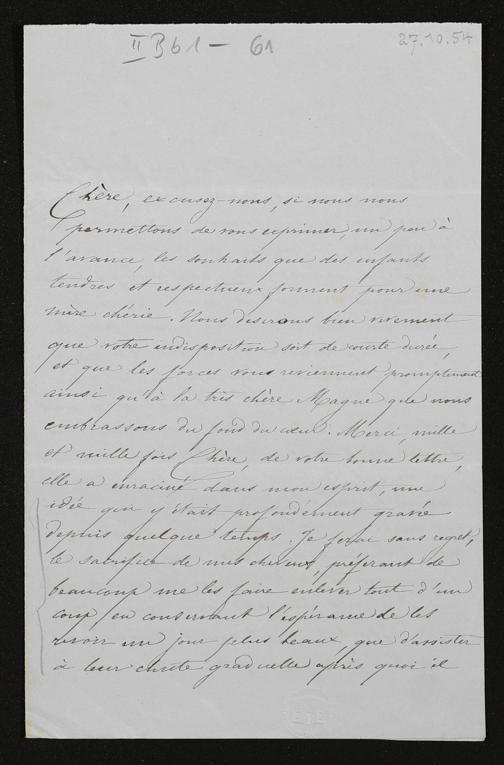 II Bb1 - 61
27.10.54
Chère, excusez-nous, si nous nous
permettons de vous exprimer, un peu à
l'avance, les souhaits que des enfants
tendres et respectueux forment pour une
mère chérie. Nous désirons bien vivement
que votre indisposition soit de courte durée,
et que les forces vous reviennent promptement
ainsi qu'à la très chère Magne que nous
embrassons du fond du cœur. Merci, mille
et mille fois Chère, de votre bonne lettre,
elle a enraciné dans mon esprit, une
idée qui y était profondément gravée
depuis quelque temps. Je ferai sans regret,
le sacrifice de mes cheveux, préférant de
beaucoup me les faire enlever tout d'un
coup, en conservant l'espérance de les
revoir un jour plus beaux, que d'assister
à leur chute graduelle après quoi il